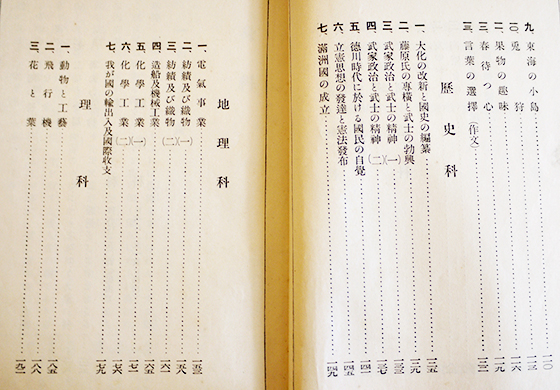 九、東海の小島
一〇、兎狩
一一、果物の趣味
一二、春待つ心
一三、言葉の選擇(作文)
歷史科
一、大化の改新と國史の編纂
二、藤原氏の專橫と武士の勃興
三、武家政治と武士の精神(一)
四、武家政治と武士の精神(二)
五、德川時代に於ける國民の自覺
六、立憲思想の發達と憲法發布
七、滿洲國の成立
地理科
一、電氣事業
二、紡績及び織物(一)
三、紡績及び織物(二)
四、造船及機械工業
五、化學工業(一)
六、化學工業(二)
七、我が國の輸出入及國際收支
理科
一、動物と工藝
二、飛行機
三、花と葉